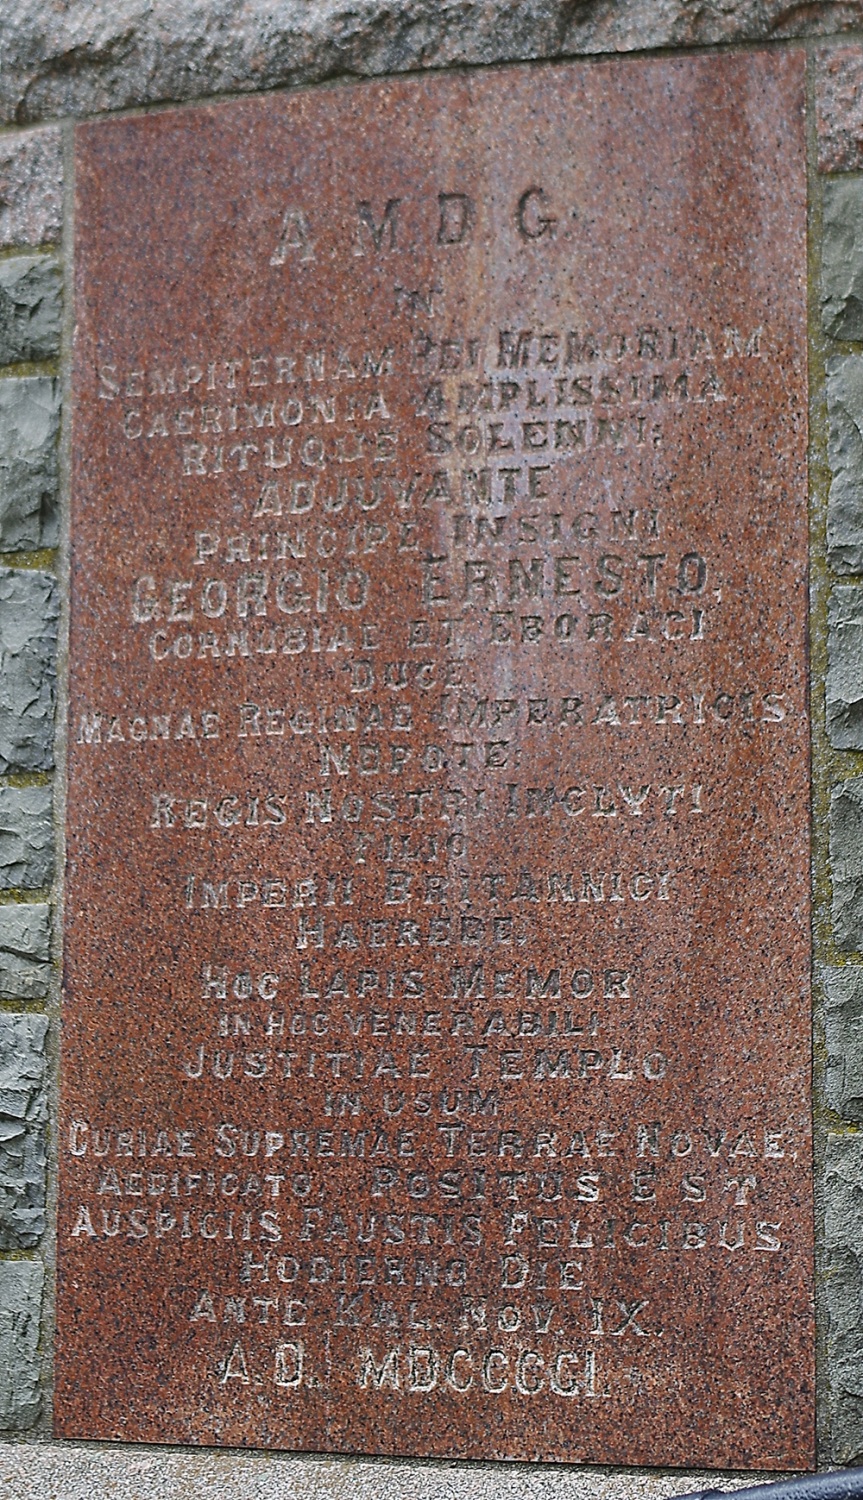 A. M. D. G.
IN
SEMPITERNAM REI MEMORIAM
CAERIMONIA AMPLISSIMA
RITUQUE SOLENNI;
ADJUVANTE
PRINCIPE INSIGNI
GEORGIO ERNESTO,
CORNUBIAE ET EBORACI
DUCE
MAGNAE REGINAE IMPERATRICIS
NEPOTE;
REGIS NOSTRI INCLYTI
FILIO
IMPERII BRITANNICI
HAEREDE,
HOC LAPIS MEMOR
IN HOC VENERABILI
JUSTITIAE TEMPLO
IN USUM
CURIAE SUPREMAE TERRAE NOVAE,
AEDIFICATO, POSITUS EST
AUSPICIIS FAUSTIS FELICIBUS
HODIERNO DIE
ANTE KAL. NOV. IX.
A.D. MDCCCCI.